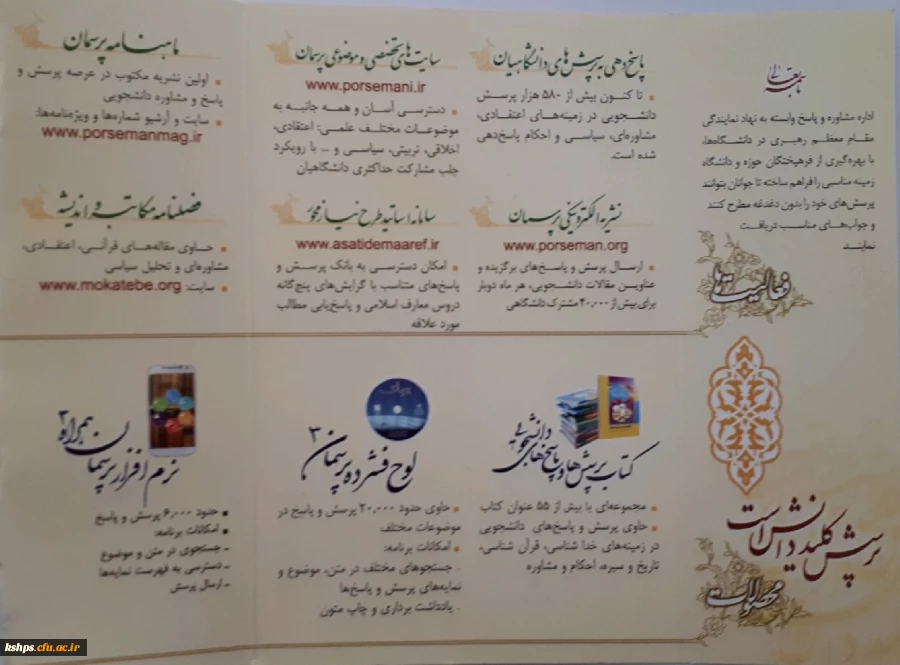 بسمه تعالی
اداره مشاوره و پاسخ وابسته به نهاد نمایندگی
مقـام معظـم رهبـری در دانشـگاه‌ها،
با بهره‌گیری از فرهیختگان حوزه و دانشگاه
زمینه مناسبی را فراهم ساخته تا جوانان بتوانند
پرسش‌های خود را بدون دغدغه مطرح کنند
و جواب‌هـای مناسـب دریـافـت
نماینـد
فعالیت‌ها
پاسخ‌دهی به پرسش‌های دانشگاهیان
تا کنـون بیش از ۵۸۰ هزار پرسـش
دانشـجویی در زمینه‌های اعتقـادی،
مشاوره‌ای، سیاسی و احکام پاسخ‌دهی
شده است.
نشریه الکترونیکی پرسمان
www.porseman.org
ارسـال پرسش و پاسخ‌های برگزیده و
عناوین مقالات دانشجویی، هر ماه دوبار
برای بیش از ۴۰,۰۰۰ مشترک دانشگاهی
سایت‌های تخصصی و موضوعی پرسمان
www.porsemani.ir
دسترسی آسـان و همـه جانبـه به
موضوعـات مختـلف علمـی: اعتقادی،
اخلاقی، تربیتی، سیاسـی و ... با رویکرد
جلب مشارکت حداکثری دانشگاهیان
سامانه اساتید طرح نیاز محور
www.asatidemaaref.ir
امکان دسترسـی به بانک پرسـش و
پاسخ‌های متناسب با گرایش‌های پنج‌گانه
دروس معارف اسلامی و پاسخ‌یابی مطالب
مورد علاقه
ماهنامه پرسمان
اولین نشریه مکتوب در عرصه پرسش و
پاسخ و مشاوره دانشجویی
سایت و آرشیو شماره‌ها و ویژه‌نامه‌ها:
www.porsemanmag.ir
فصلنامه مکاتبه و اندیشه
حـاوی مقاله‌هـای قرآنـی، اعتقـادی،
مشاوره‌ای و تحلیل سیاسی
سایت: www.mokatebe.org
پرسش کلید دانش است
محصولات
کتاب پرسش‌ها و پاسخ‌های دانشجویی
مجموعه‌ای با بیش از ۵۵ عنوان کتاب
حاوی پرسش و پاسخ‌های دانشجویی
در زمینه‌های خدا شناسی، قرآن شناسی،
تاریخ و سیره، احکام و مشاوره
لوح فشرده پرسمان ۳
حاوی حدود ۲۰,۰۰۰ پرسش و پاسخ در
موضوعات مختلف
امکانات برنامه:
. جستجوهای مختلف در متن، موضوع و
نمایه‌های پرسش و پاسخ‌ها
. یادداشت برداری و چاپ متون
نرم افزار پرسمان همراه ۲
حدود ۶,۰۰۰ پرسش و پاسخ
امکانات برنامه:
- جستجوی در متن و موضوع
- دسترسی به فهرست نمایه‌ها
- ارسال پرسش
kshps.cfu.ac.ir